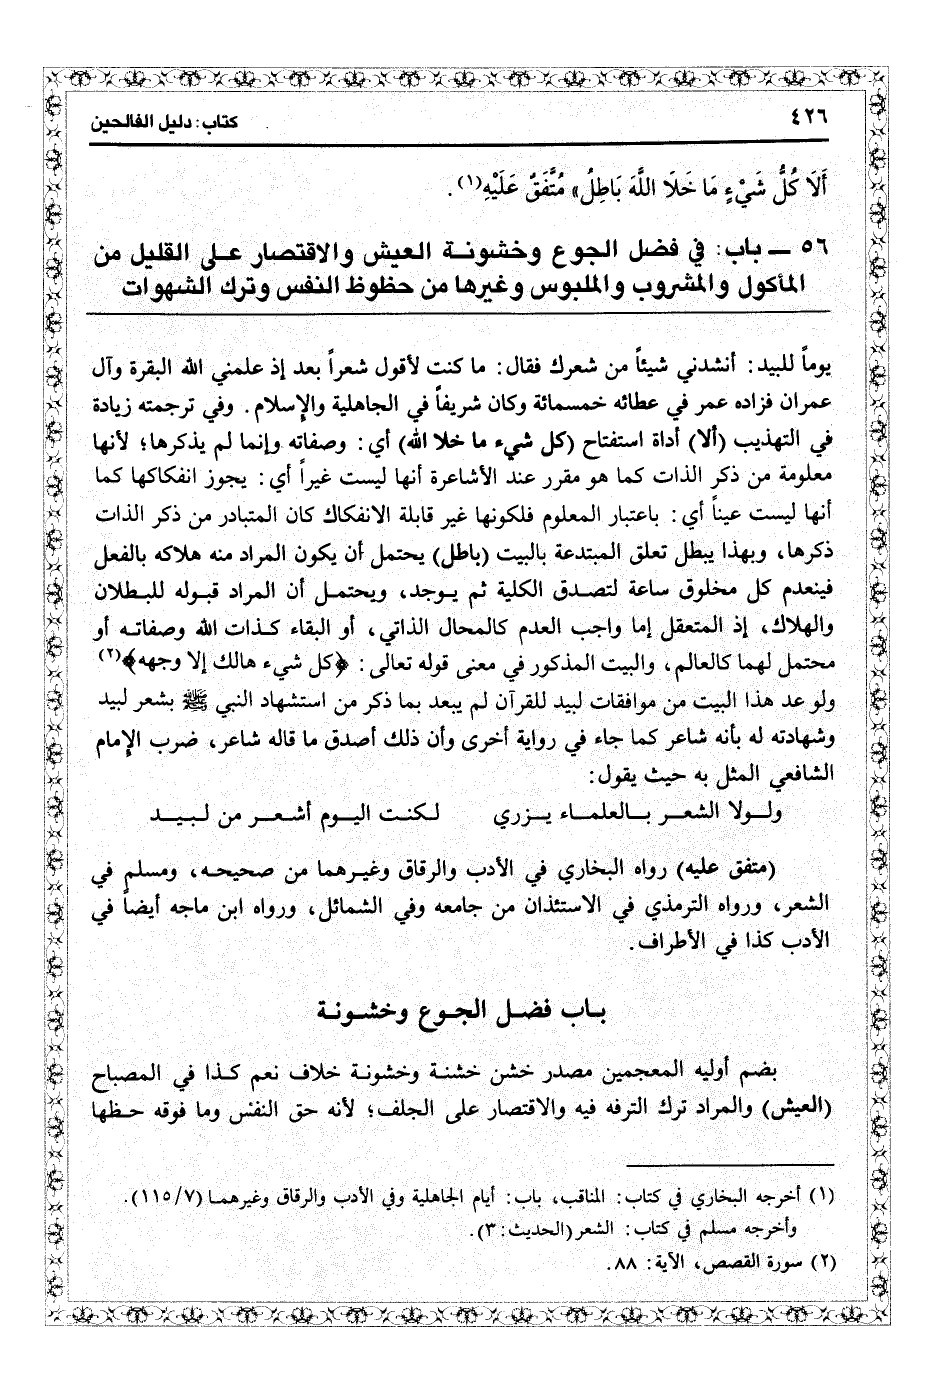 ٤٢٦
كتاب: دليل الفالحين
أَلَا كُلُّ شَيْءٍ مَا خَلَا اللَّهَ بَاطِلُ» مُتَّفَقٌ عَلَيْهِ(١).
٥٦ ـ باب: في فضل الجوع وخشونة العيش والاقتصار على القليل من
المأكول والمشروب والملبوس وغيرها من حظوظ النفس وترك الشهوات
يوماً للبيد: أنشدني شيئاً من شعرك فقال: ما كنت لأقول شعراً بعد إذ علمني الله البقرة وآل
عمران فزاده عمر في عطائه خمسمائة وكان شريفاً في الجاهلية والإسلام. وفي ترجمته زيادة
في التهذيب (ألا) أداة استفتاح (كل شيء ما خلا الله) أي: وصفاته وإنما لم يذكرها؛ لأنها
معلومة من ذكر الذات كما هو مقرر عند الأشاعرة أنها ليست غيراً أي: يجوز انفكاكها كما
أنها ليست عيناً أي: باعتبار المعلوم فلكونها غير قابلة الانفكاك كان المتبادر من ذكر الذات
ذكرها، وبهذا يبطل تعلق المبتدعة بالبيت (باطل) يحتمل أن يكون المراد منه هلاكه بالفعل
فينعدم كل مخلوق ساعة لتصدق الكلية ثم يوجد، ويحتمل أن المراد قبوله للبطلان
والهلاك، إذ المتعقل إما واجب العدم كالمحال الذاتي، أو البقاء كذات الله وصفاته أو
محتمل لهما كالعالم، والبيت المذكور في معنى قوله تعالى: ﴿كل شيء هالك إلا وجهه﴾(٢)
ولو عد هذا البيت من موافقات لبيد للقرآن لم يبعد بما ذكر من استشهاد النبي ﷺ بشعر لبيد
وشهادته له بأنه شاعر كما جاء في رواية أخرى وأن ذلك أصدق ما قاله شاعر، ضرب الإمام
الشافعي المثل به حيث يقول:
ولولا الشعر بالعلماء يزري لكنت اليوم أشعر من لبيد
(متفق عليه) رواه البخاري في الأدب والرقاق وغيرهما من صحيحه، ومسلم في
الشعر، ورواه الترمذي في الاستئذان من جامعه وفي الشمائل، ورواه ابن ماجه أيضاً في
الأدب كذا في الأطراف.
باب فضل الجوع وخشونة
بضم أوليه المعجمين مصدر خشن خشنة وخشونة خلاف نعم كذا في المصباح
(العيش) والمراد ترك الترفه فيه والاقتصار على الجلف؛ لأنه حق النفس وما فوقه حظها
(١) أخرجه البخاري في كتاب: المناقب، باب: أيام الجاهلية وفي الأدب والرقاق وغيرهما (١١٥/٧).
وأخرجه مسلم في كتاب: الشعر (الحديث: ٣).
(٢) سورة القصص، الآية: ٨٨.